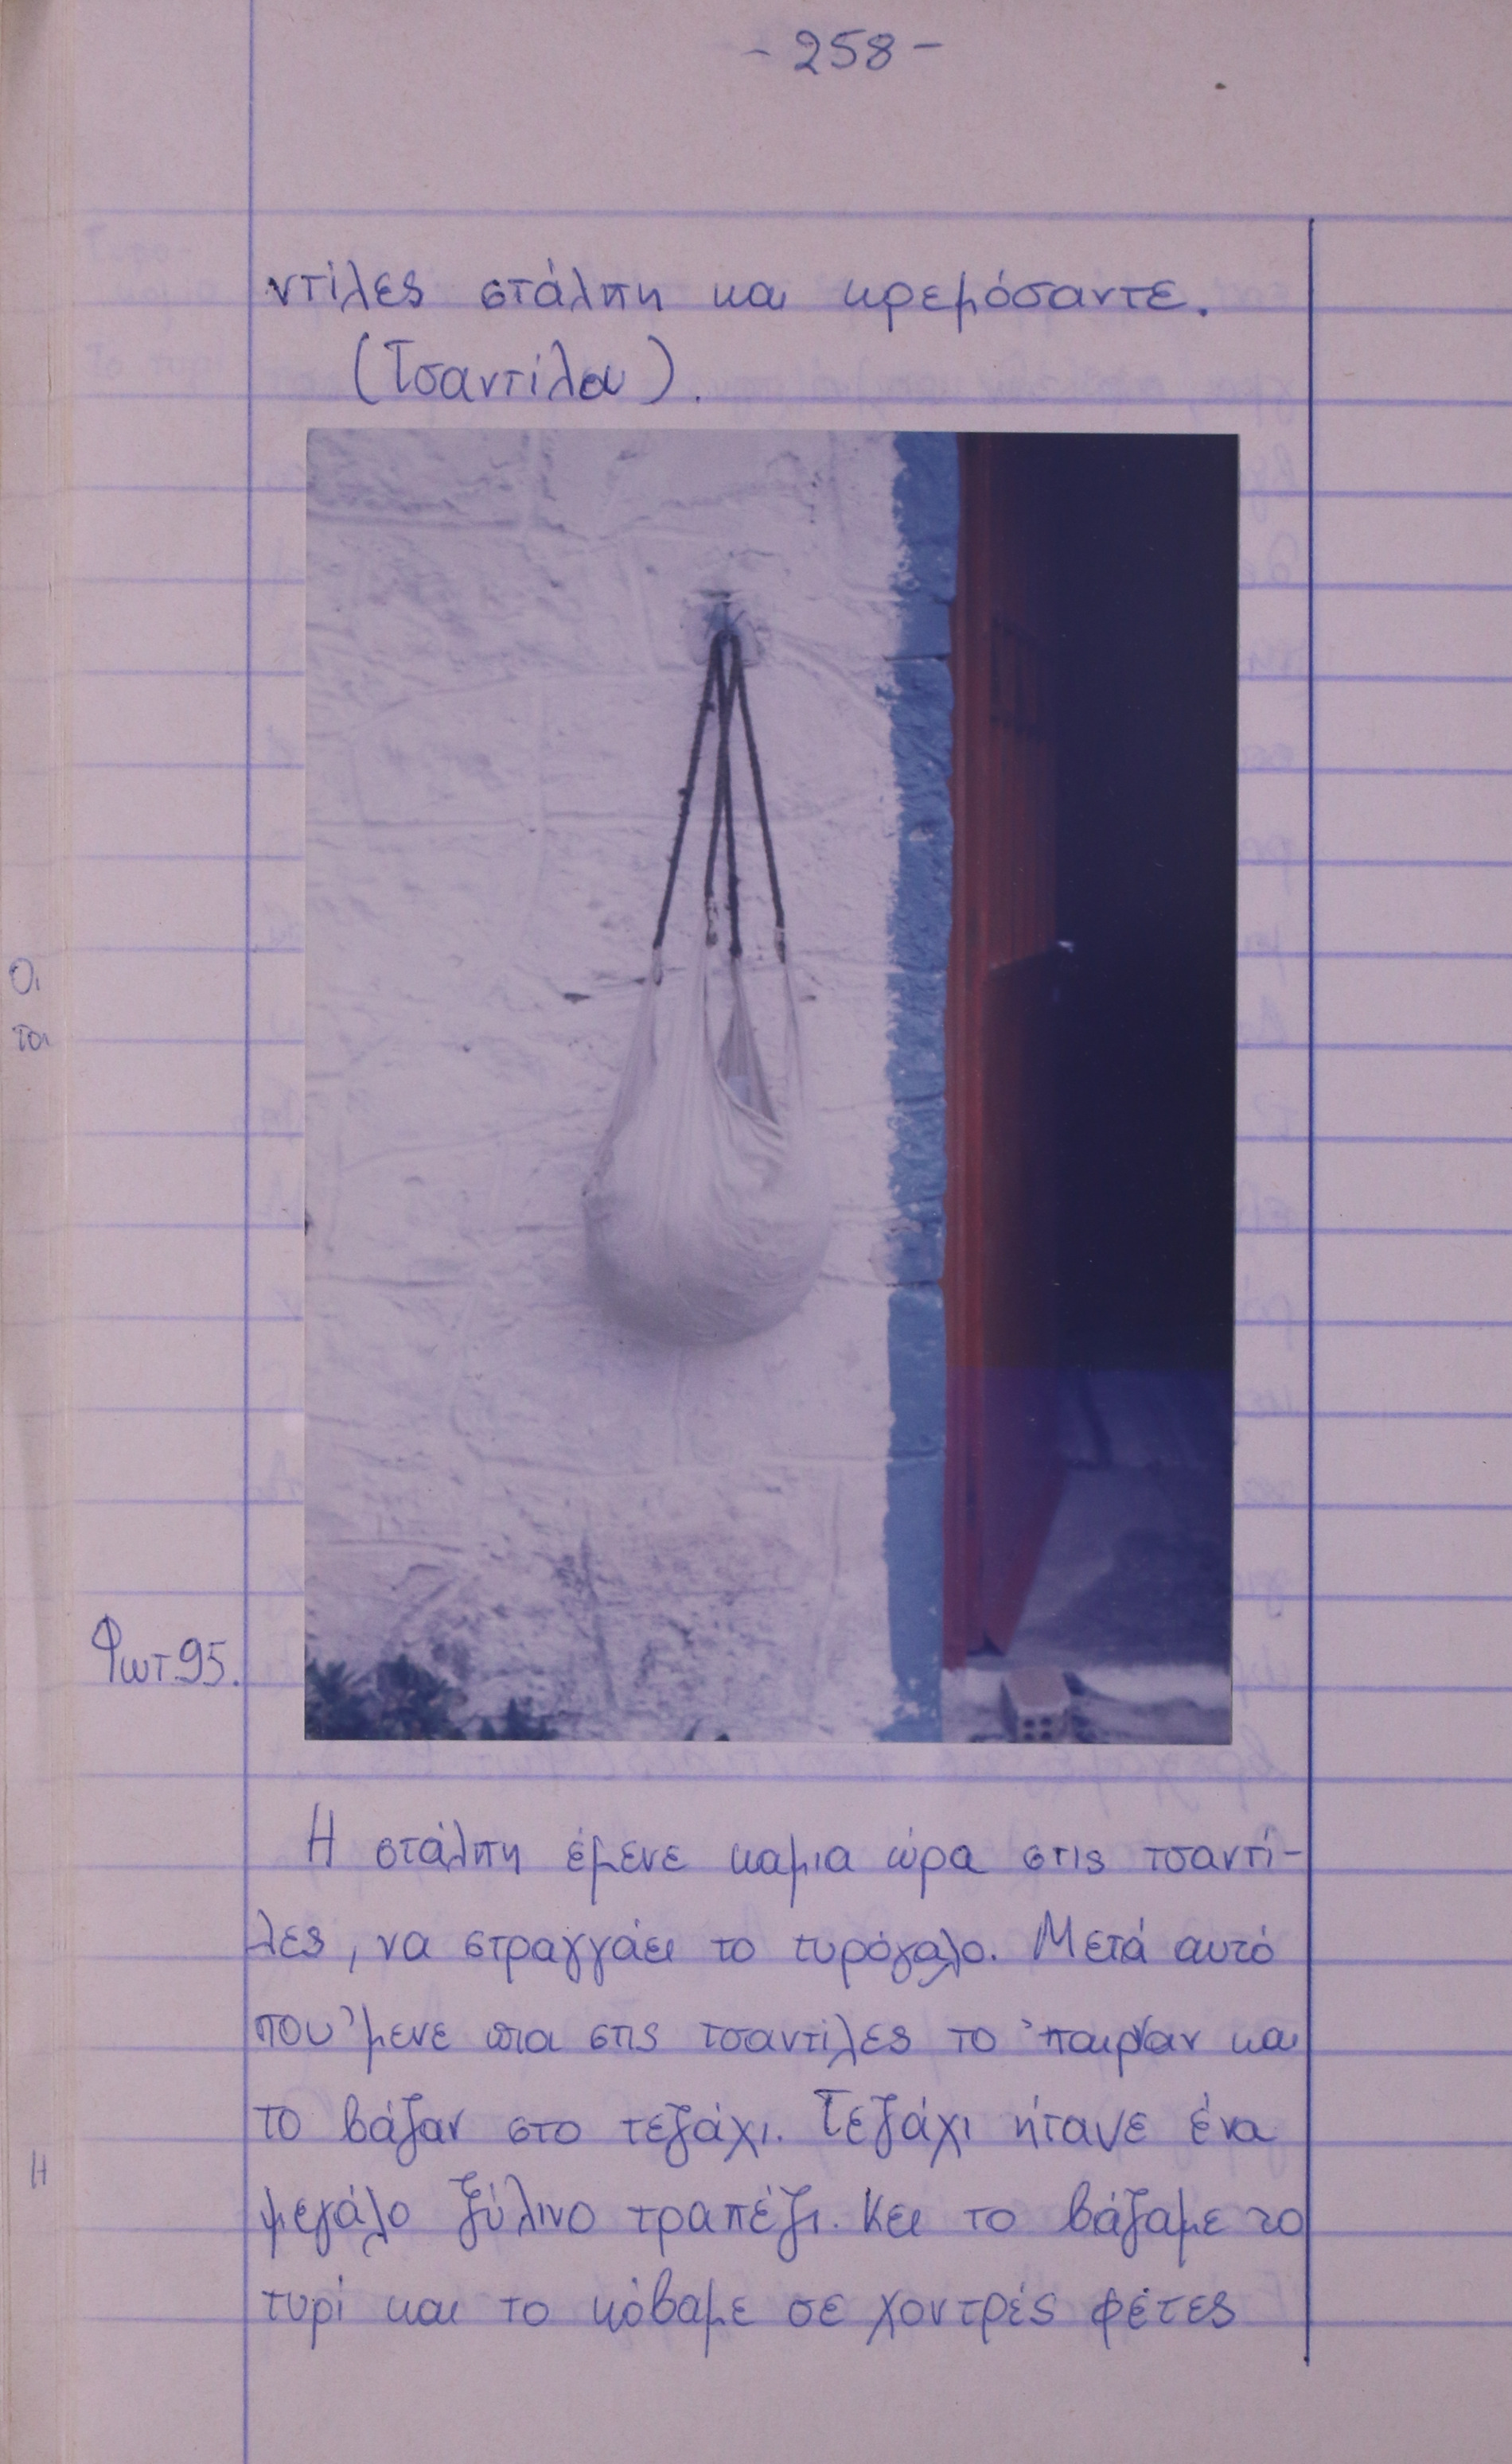 - 258 -
ντίλες στάλπη και κρεμόσαντε.
(Τσαντίλα).
Οι
το
Φωτ 95.
Η στάλπη έμενε καμια ώρα στις τσαντί-
λες, να στραγγάει το τυρόγαλο. Μετά αυτό
που 'μενε πια στις τσαντίλες το 'παιρναν και
το βάζαν στο τεζάχι. Τεζάχι ήτανε ένα
μεγάλο ξύλινο τραπέζι. Κει το βάζαμε το
τυρί και το κόβαμε σε χοντρές φέτες
Η